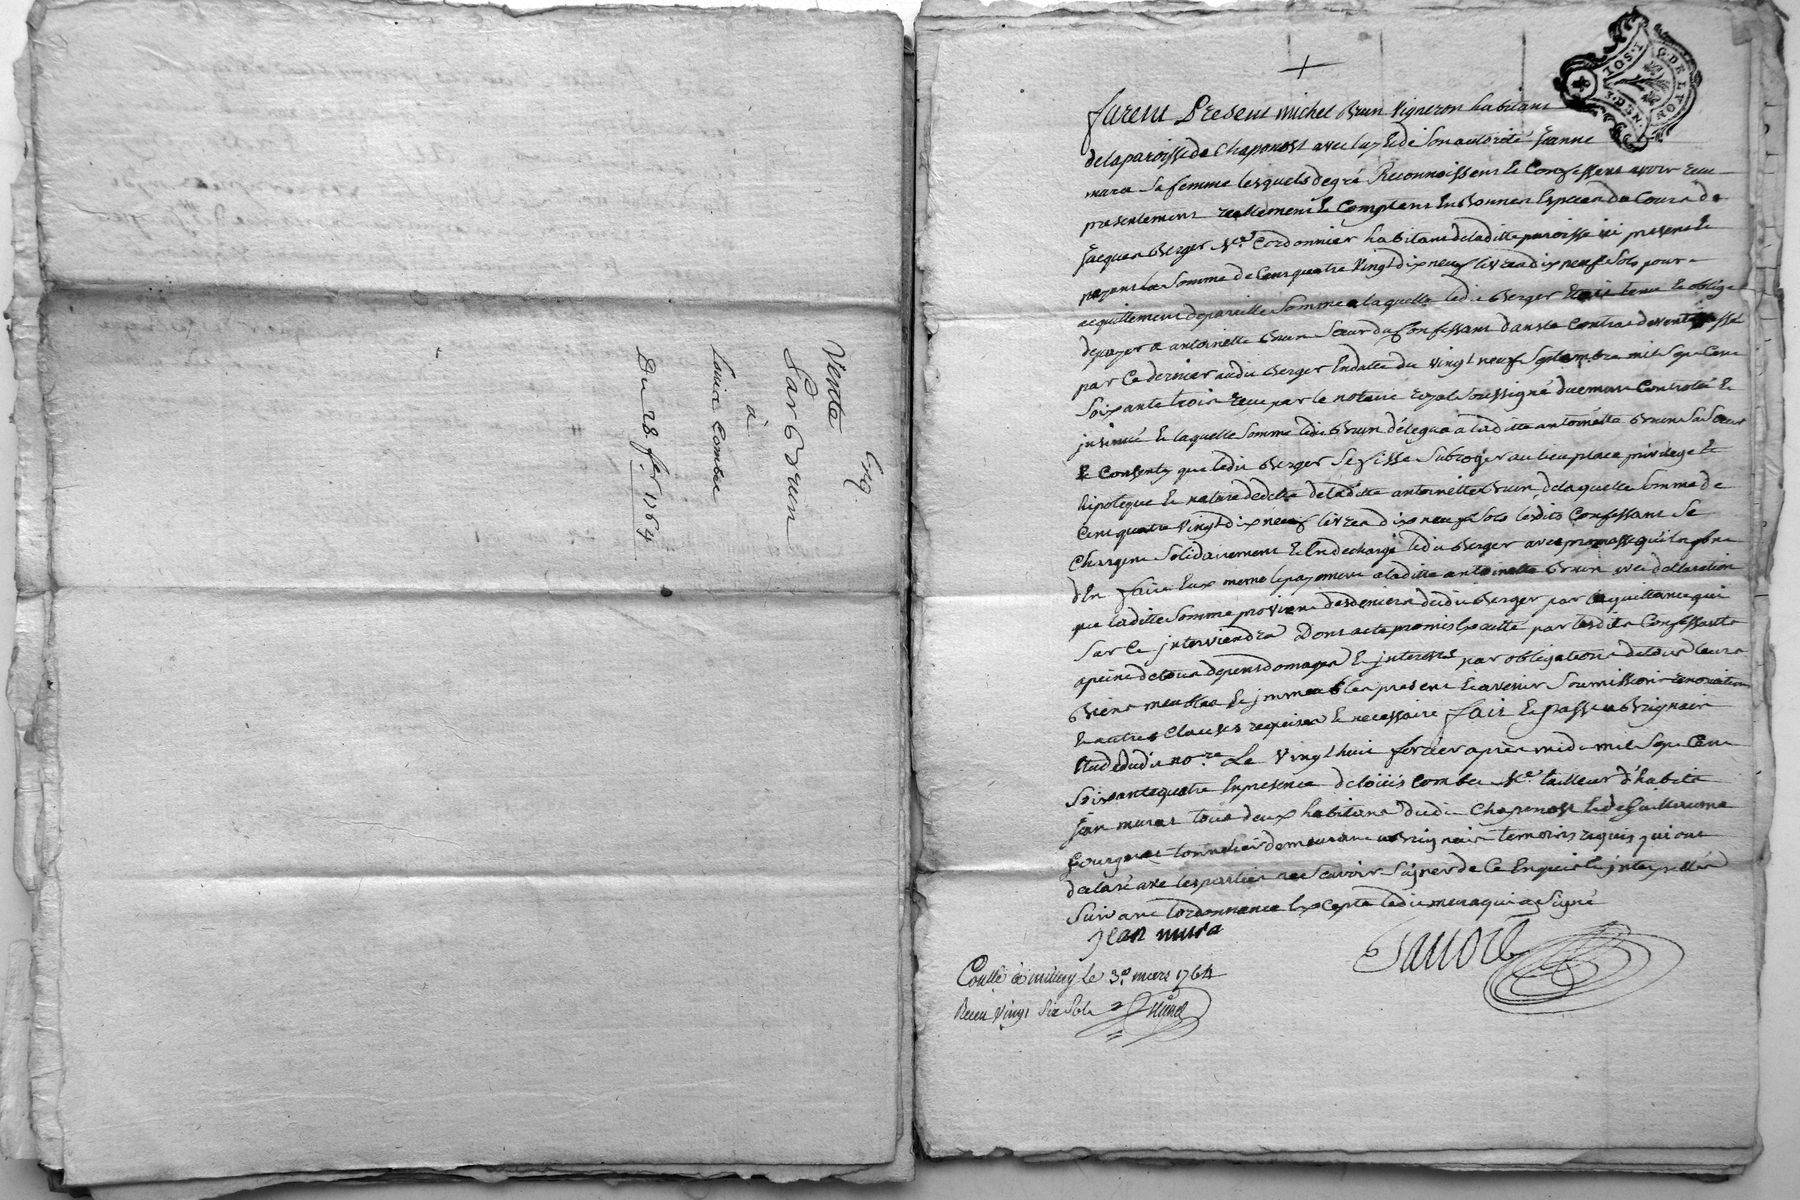 Enq
Vente
Par Brun
à
Louis Combe
Du 28 fer. 1764
G. DE LYON
1 SOL.
4. DEN.
furent Present michel Brun Vigneron habitant
de la paroisse de Chaponost avec luy Et de Son autorité Jeanne
mura Sa femme lesquels de gré Reconnoissent Et Confessent avoir reçu
presentement reallement Et Comptent En Bonnes Especes du Cours de
Jacques Berger Me. Cordonnier habitant de laditte paroisse ici present Et
payent la Somme de Cent quatre Vingt dix neuf livres dix neuf Sols pour
acquittement de pareille Somme a laquelle ledit Berger Etoit tenu Et obligé
de payer a antoinette Brun Sœur du Confessant dans le Contrat de vente passé
par Ce dernier audit Berger En datte du Vingt neuf Septembre mil Sept Cent
Soixante trois reçu par le notaire royal Soussigné duement Controlé Et
jnsinué Et laquelle Somme ledit Brun délegua a laditte antoinette Brun Sa Sœur
Et Consenty que ledit Berger Se fisse Subroger au lieu place privilege Et
hipoteque Et nature de dette de laditte antoinette Brun, de laquelle Somme de
Cent quatre Vingt dix neuf livres dix neuf Sols lesdits Confessant Se
Chargent Solidairement Et En decharge ledit Berger avec promesse qu'ils font
d'En faire Eux meme le payement a laditte antoinette Brun avec declaration
que laditte Somme provient des deniers dudit Berger par la quittance qui
Sur Ce jnterviendra Dont acte promis Execute par lesdits Confessants
a peine de tous depens domages Et jnterest par obligations de tous leurs
Biens meubles Et jmmeubles present Et avenir Soumissions renonciations
Et autres Clauses requises Et necessaire fait Et passé a Brignais
Etude dudit nore. Le Vingt huit fevrier après midi mil Sept Cent
Soixante quatre En presence de loüis Combe Me. tailleur d'habits
Jean murat tous deux habitans dudit Chaponost Et de Guillaume
tonnelier demeurant a Brignais temoins requis qui ont
declaré avec les parties ne Scavoir Signer de Ce Enquis Et jnterpellés
Suivant l'ordonnance Excepté ledit mura qui a Signé
jean mura
Conllé à millery le 3e. mars 1764
Reçu Vingt Six Sols